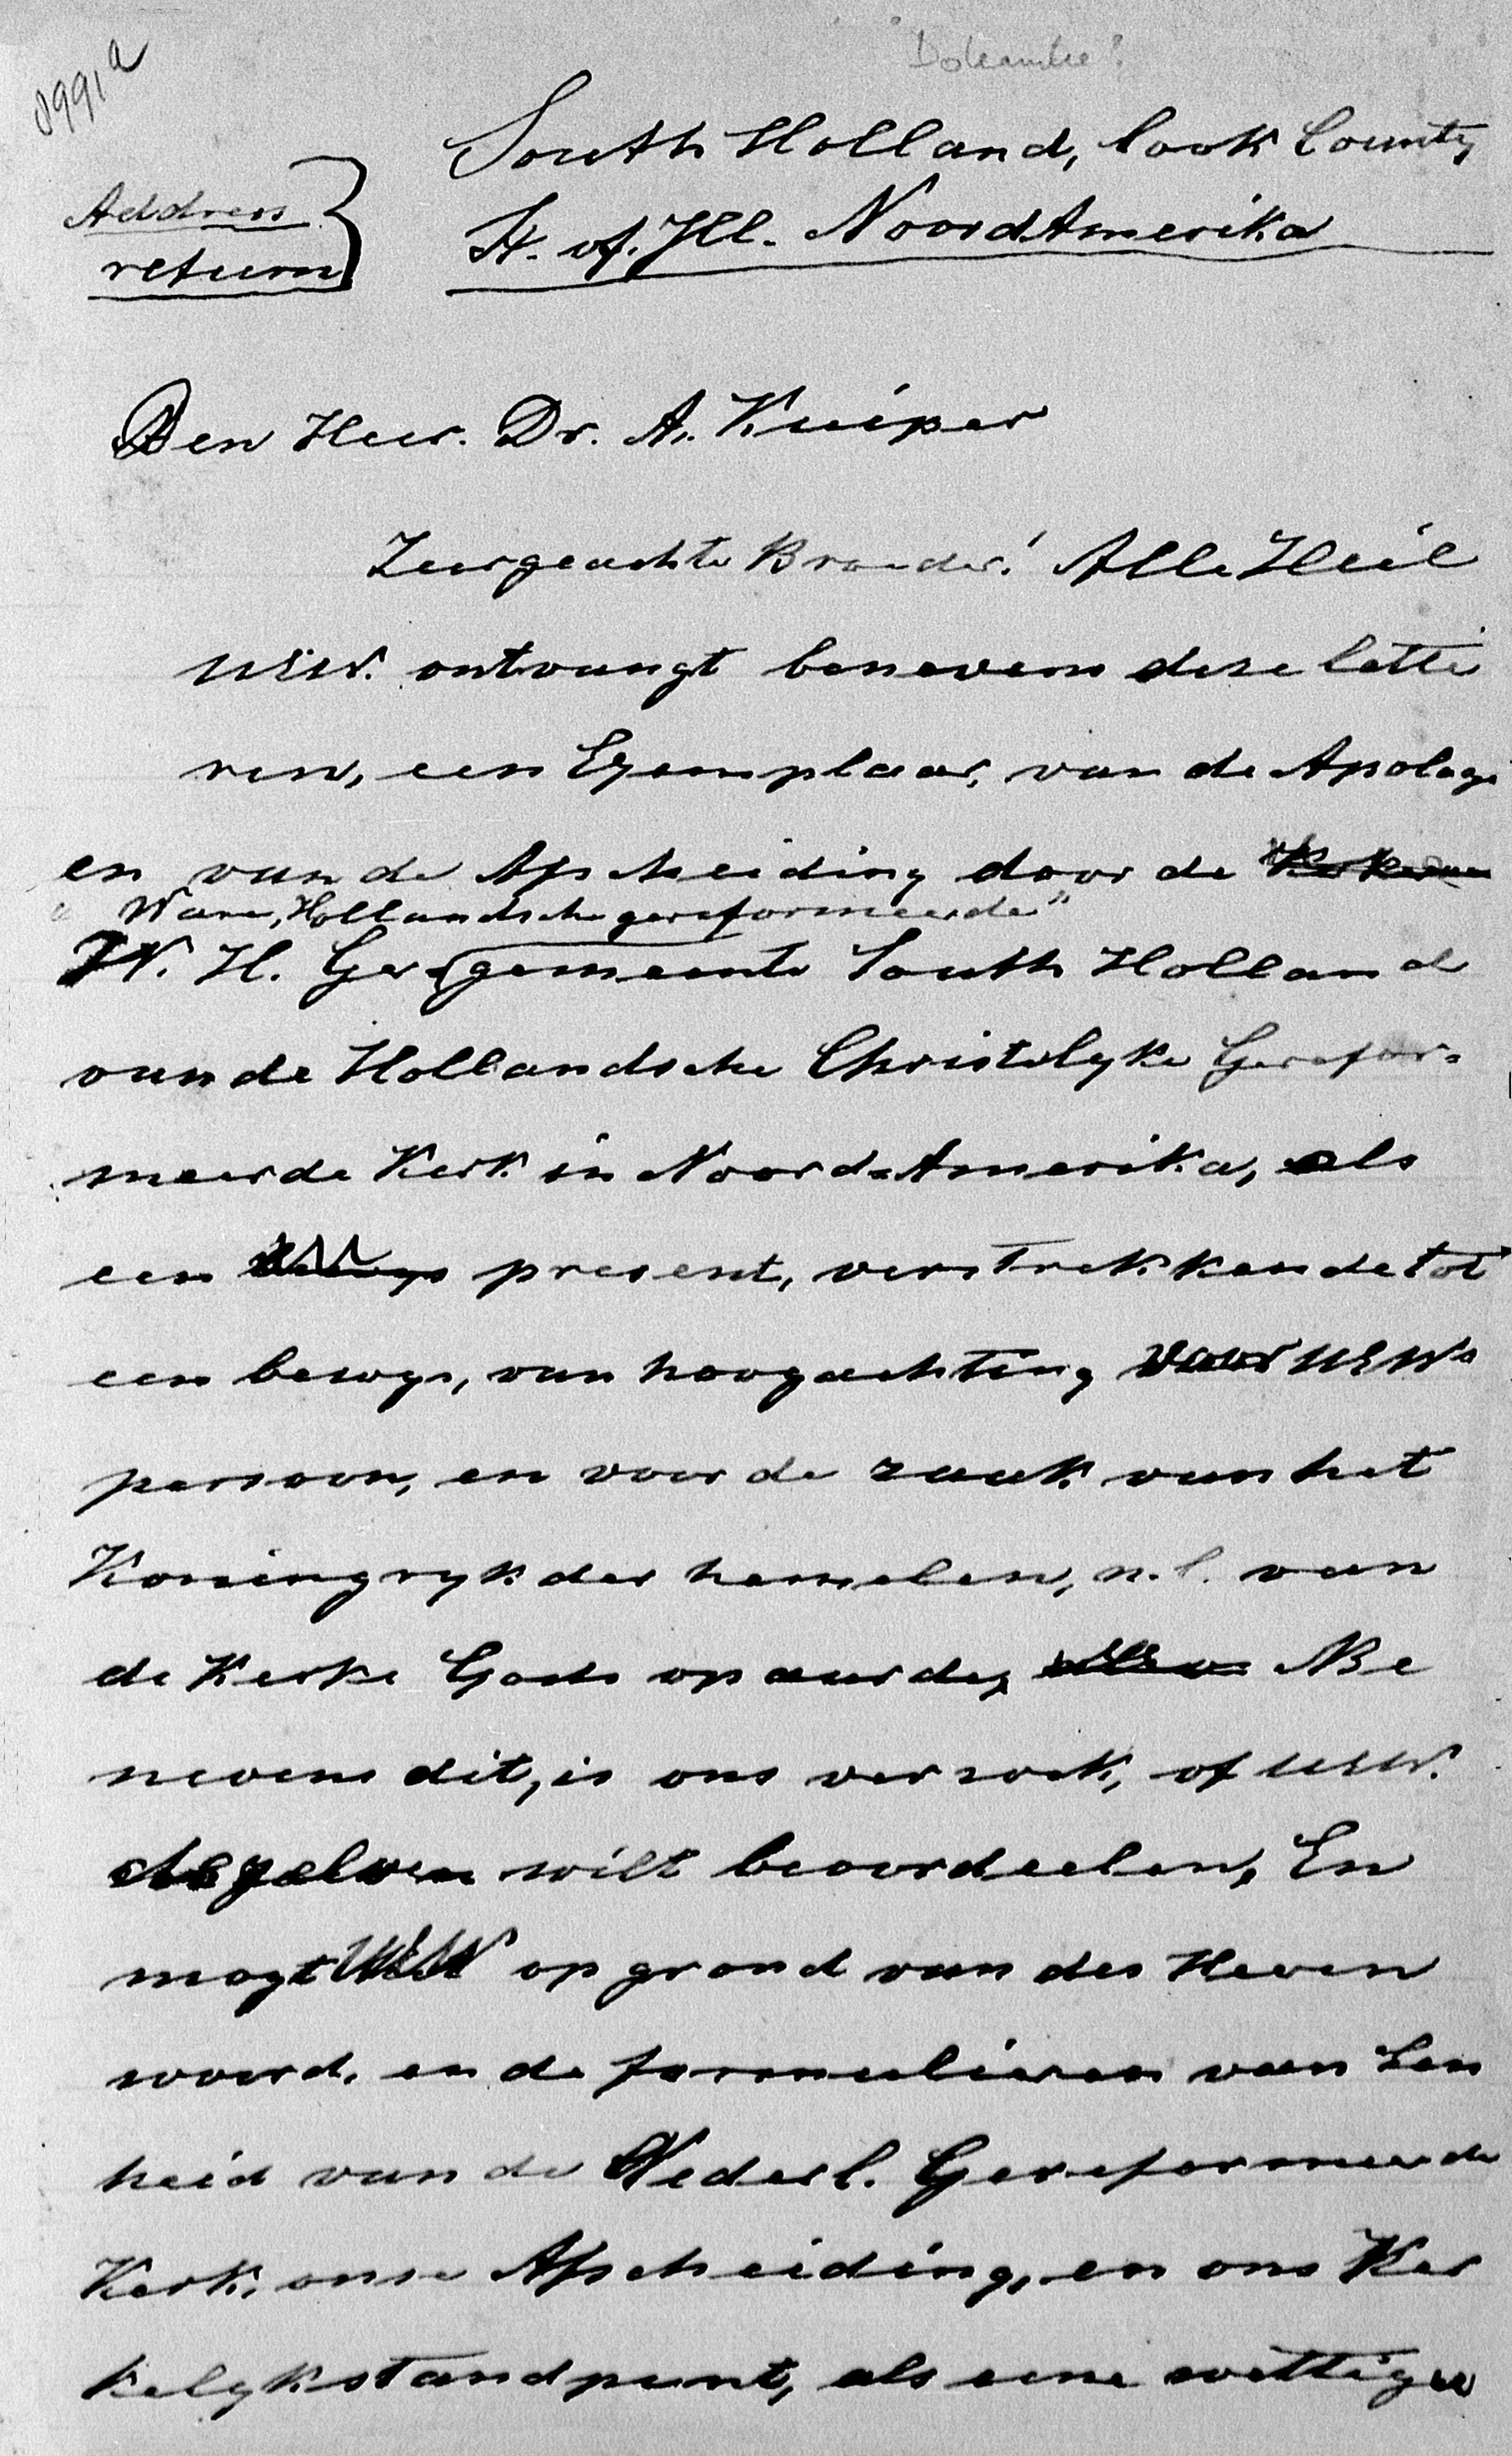 8991a
Doleantie?
South Holland, Cook County
Address return } St. of. Ill. Noord Amerika
Den Heer. Dr. A. Kuiper
Zeergeachte Broeder! Alle Heil
UEW. ontvangt benevens deze lette
ren, een Exemplaar, van de Apologi
en van de Afscheiding door de
Ware, Hollandsche gereformeerde"
W. H. Ger. gemeente South Holland
van de Hollandsche Christelyke Gerefor=
meerde Kerk in Noord-Amerika, als
een present, verstrekkende tot
een bewys, van hoogachting voor UEWs
persoon, en voor de zaak van het
Koningryk der hemelen, n.l. van
de Kerke Gods op aarde, Be
nevens dit, is ons verzoek, of UEW.
dezelven wilt beoordeelen, En
mogt UEW op grond van des Heeren
woord, en de formulieren van Een
heid van de Nederl. Gereformeerde
Kerk, onse Afscheiding, en ons Ker
kelyk standpunt, als eene wettige